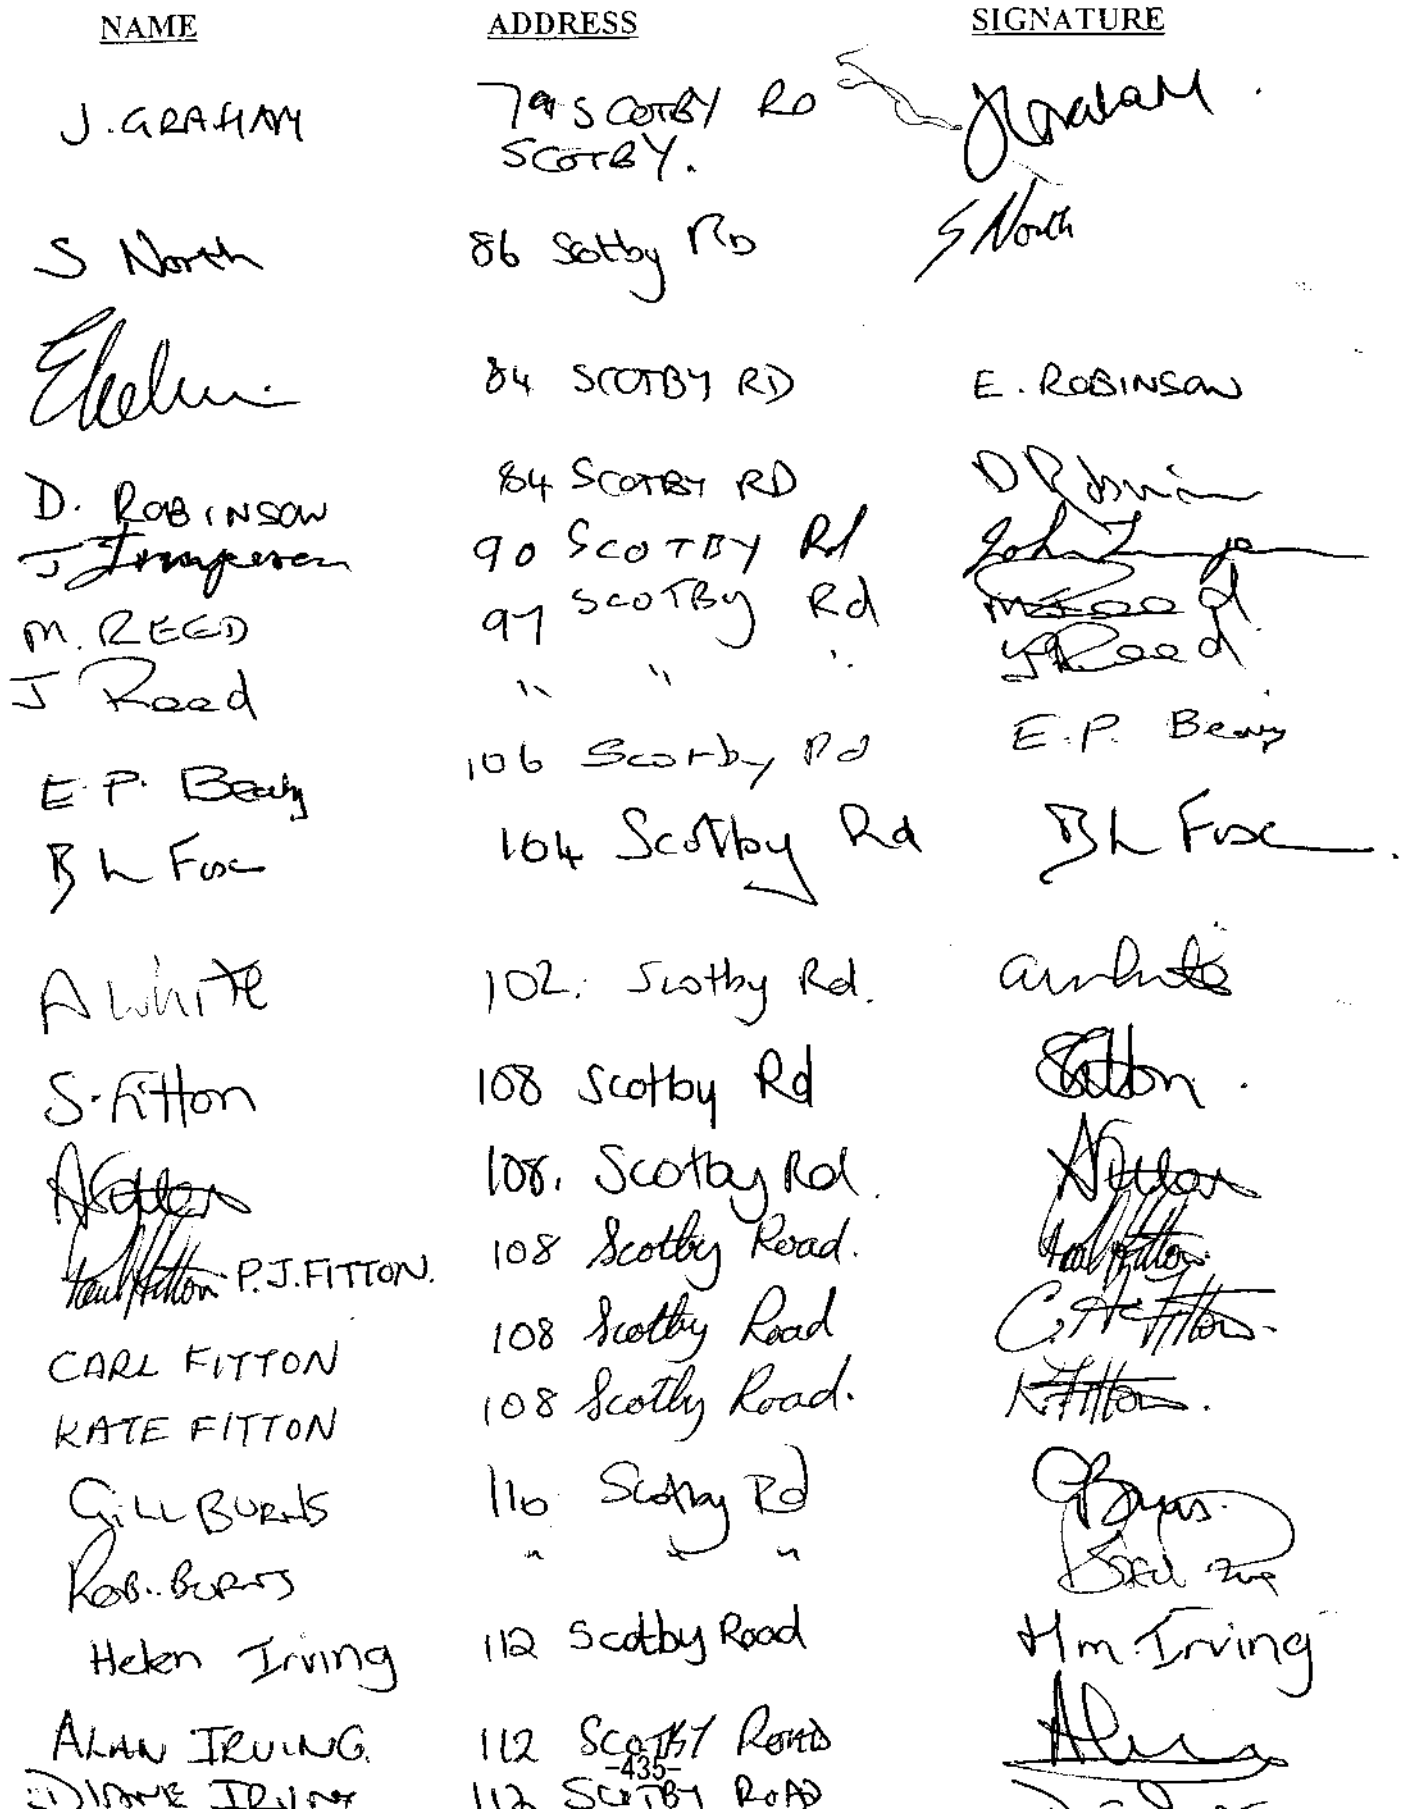 NAME ADDRESS SIGNATURE
J. GRAHAM 79 SCOTBY RD JGraham.
SCOTBY.
S North 86 Scotby RD S North
84 SCOTBY RD E. ROBINSON
D. ROBINSON 84 SCOTBY RD D Robinson
J 90 SCOTBY Rd John
M. REED 97 SCOTBY Rd M Reed
J Reed " " " J Reed
E.P. Beaty 106 Scotby Rd E.P. Beaty
B L Fox 104 Scotby Rd B L Fox.
A White 102. Scotby Rd. A White
S. Fitton 108 Scotby Rd SFitton.
A Fitton 108. Scotby Rd. A Fitton
Paul Fitton P.J. FITTON. 108 Scotby Road. Paul Fitton.
CARL FITTON 108 Scotby Road C. A. Fitton.
KATE FITTON 108 Scotby Road. K. Fitton.
GILL BURNS 110 Scotby Rd G Burns.
ROB. BURNS " " "
Helen Irving 112 Scotby Road H m. Irving
ALAN IRVING. 112 SCOTBY ROAD
-435-
DIANE IRVING 112 SCOTBY ROAD